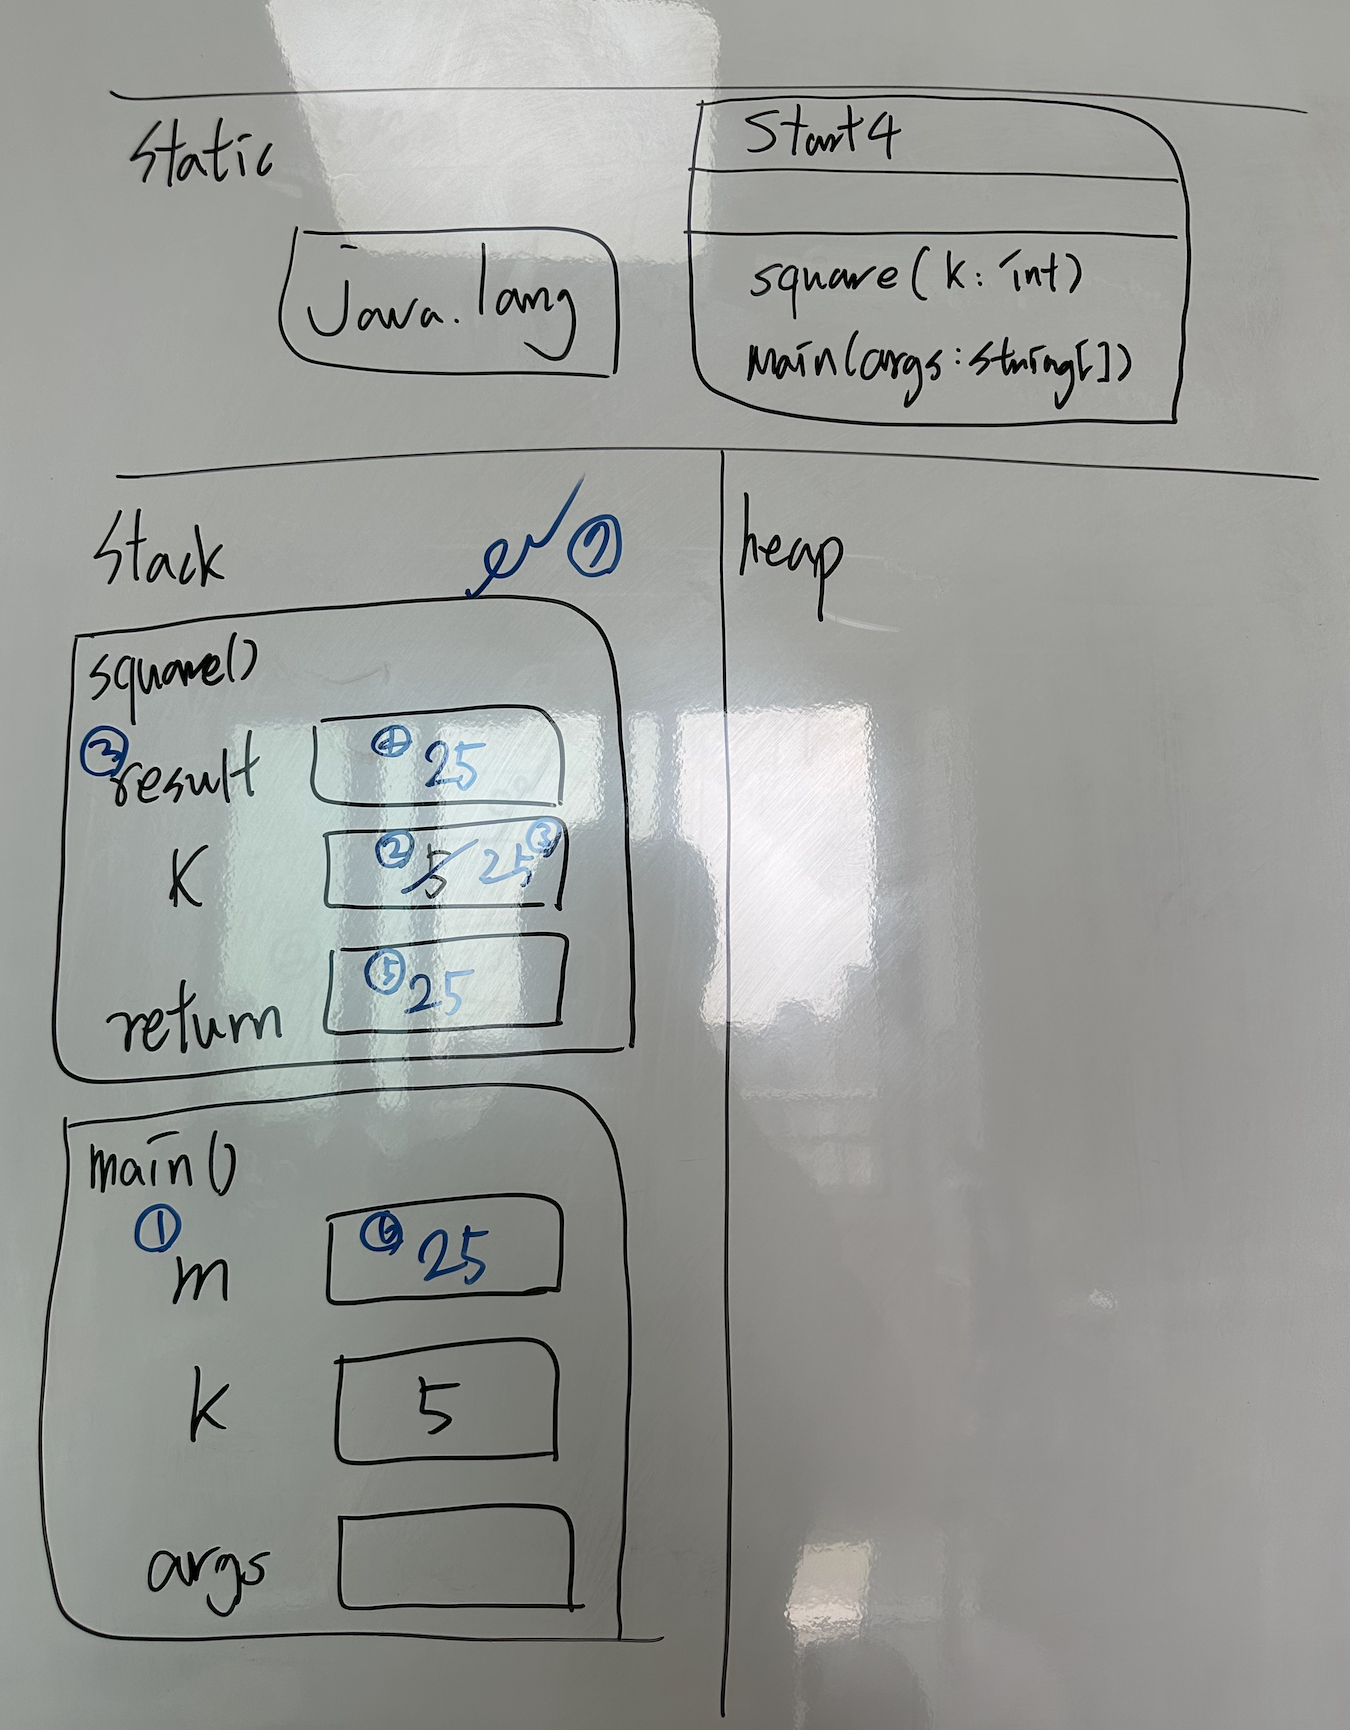 static
Start4
java.lang
square(k: int)
main(args:string[])
stack
⑦
heap
square()
③ result ④ 25
K ② 5 25 ③
return ⑤ 25
main()
① m ⑥ 25
K 5
args